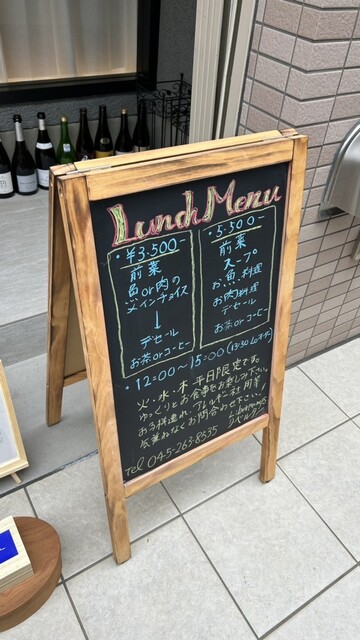 Lunch Menu
・¥3,500-
前菜
魚or肉の
メインチョイス
↓
デセール
お茶orコーヒー
・5,500-
前菜
スープ
お魚料理
お肉料理
デセール
お茶orコーヒー
・12:00〜15:00 (13:30 L.オーダー)
火・水・木 平日限定です。
ゆっくりとお食事をお楽しみ下さい。
お子様連れ、アレルギー対応
気兼ねなくお問合わせ下さい。
Tel 045-263-8535